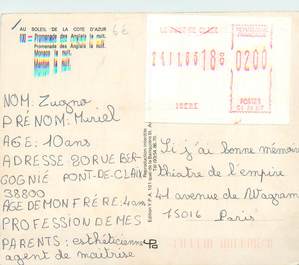 AU SOLEIL DE LA COTE D'AZUR
Promenade des Anglais la nuit.
Promenade des Anglais la nuit.
Monaco la nuit.
Menton la nuit.
6€
24.11.83 18
0200
POSTES
ISERE
NOM: Zuagno
PRÉNOM: Muriel
AGE: 10 ans
ADRESSE 80 RUE BER-
GOGNIÉ PONT-DE-CLAIX
38800
AGE DE MON FRÈRE: 4 ans
PROFESSION DE MES
PARENTS: esthéticienne
agent de maîtrise
Reproduction interdite
Si j'ai bonne mémoire
théatre de l'empire
41 avenue de Wagram
75016 Paris